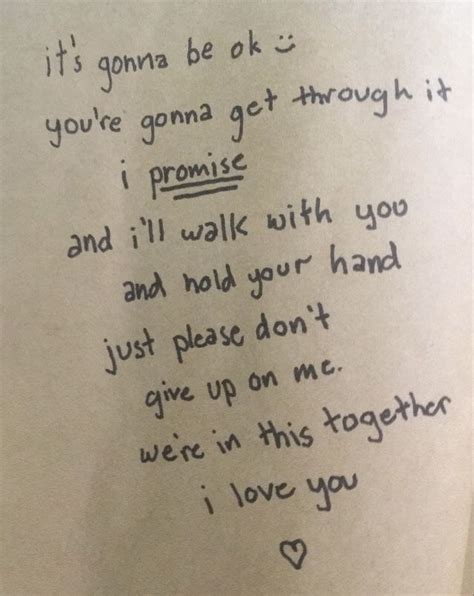 it's gonna be ok :)
you're gonna get through it
i promise
and i'll walk with you
and hold your hand
just please don't
give up on me.
we're in this together
i love you
♡